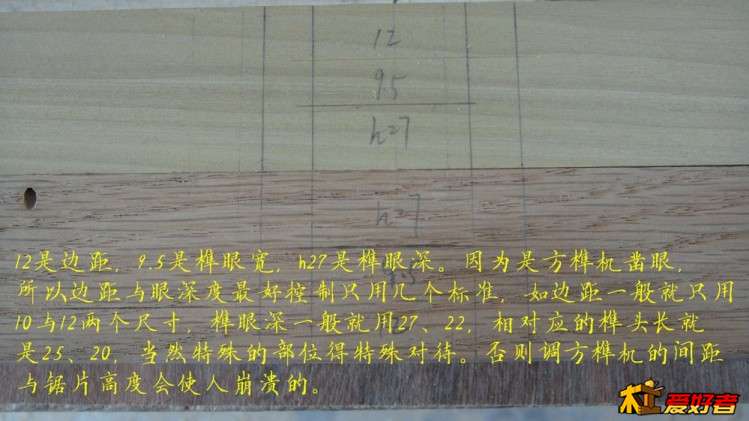 12
9.5
h27
h27
9.5
12是边距，9.5是榫眼宽，h27是榫眼深。因为是方榫机凿眼，
所以边距与眼深度最好控制只用几个标准，如边距一般就只用
10与12两个尺寸，榫眼深一般就用27、22，相对应的榫头长就
是25、20，当然特殊的部位得特殊对待。否则调方榫机的间距
与锯片高度会使人崩溃的。
木工爱好者